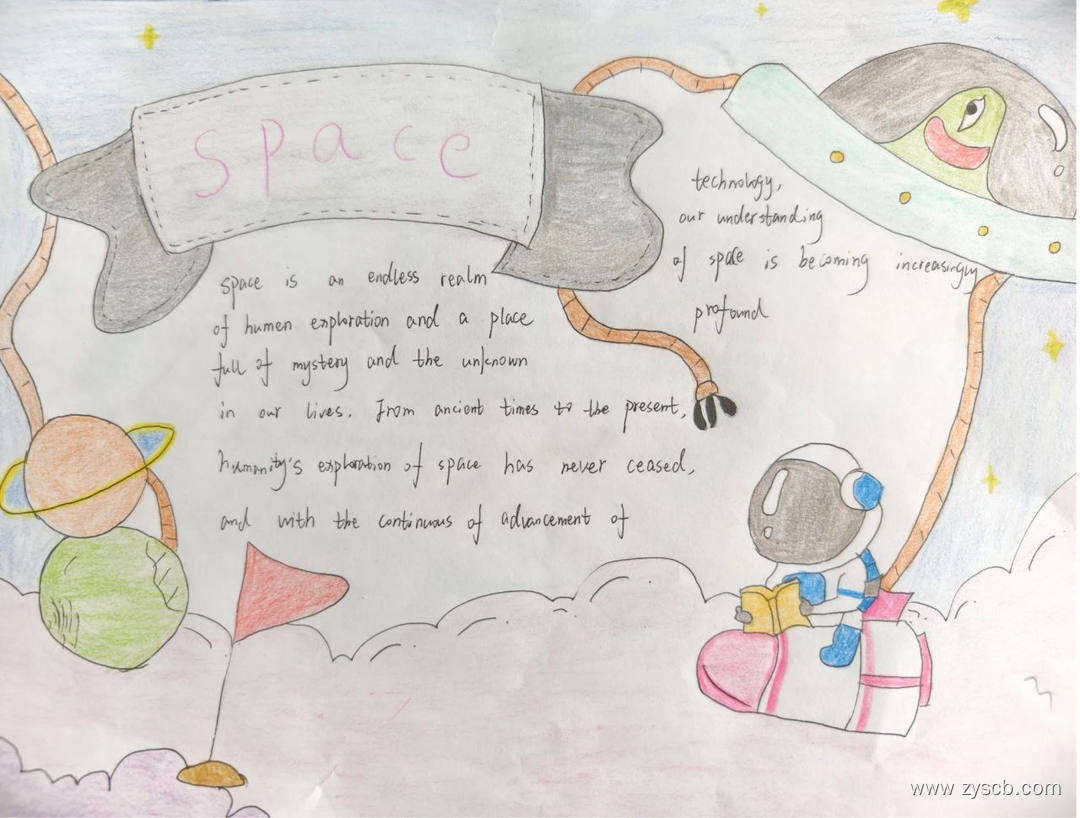 space
space is an endless realm
of human exploration and a place
full of mystery and the unknown
in our lives. From ancient times to the present,
humanity's exploration of space has never ceased,
and with the continuous of advancement of
technology,
our understanding
of space is becoming increasingly
profound
www.zyscb.com